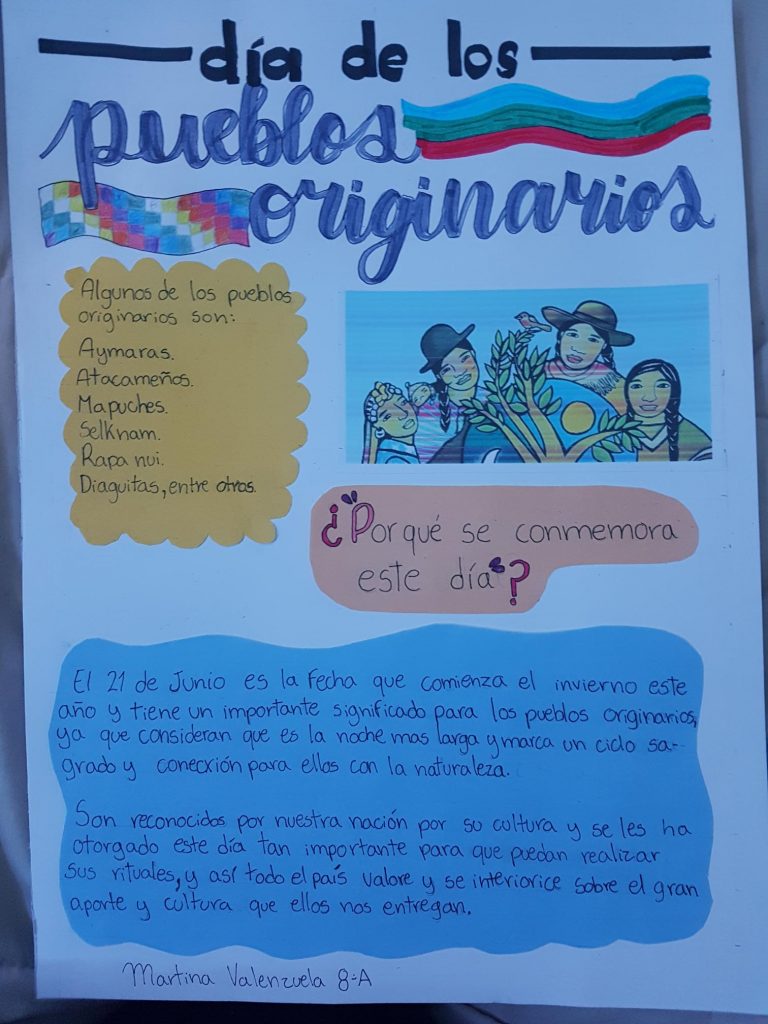 día de los
pueblos
originarios
Algunos de los pueblos
originarios son:
Aymaras.
Atacameños.
Mapuches.
Selknam.
Rapa nui.
Diaguitas, entre otros.
¿Por qué se conmemora
este día?
El 21 de Junio es la Fecha que comienza el invierno este
año y tiene un importante significado para los pueblos originarios,
ya que consideran que es la noche mas larga y marca un ciclo sa-
grado y conecxión para ellos con la naturaleza.
Son reconocidos por nuestra nación por su cultura y se les ha
otorgado este día tan importante para que puedan realizar
sus rituales, y así todo el país valore y se interiorice sobre el gran
aporte y cultura que ellos nos entregan.
Martina Valenzuela 8-A